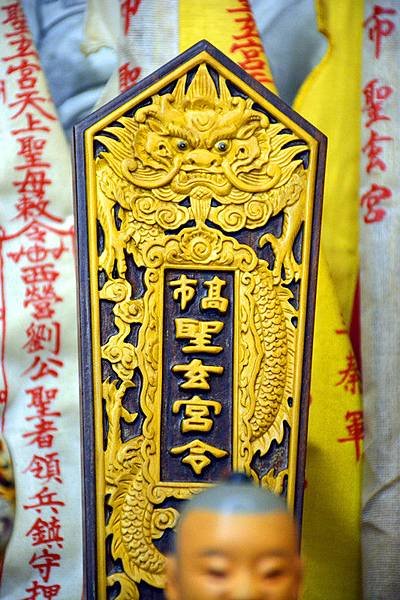 市聖玄宮
秦軍
玄宮
市
高市
聖玄宮令
聖玄宮天上聖母敕令西營劉公聖者領兵鎮守押